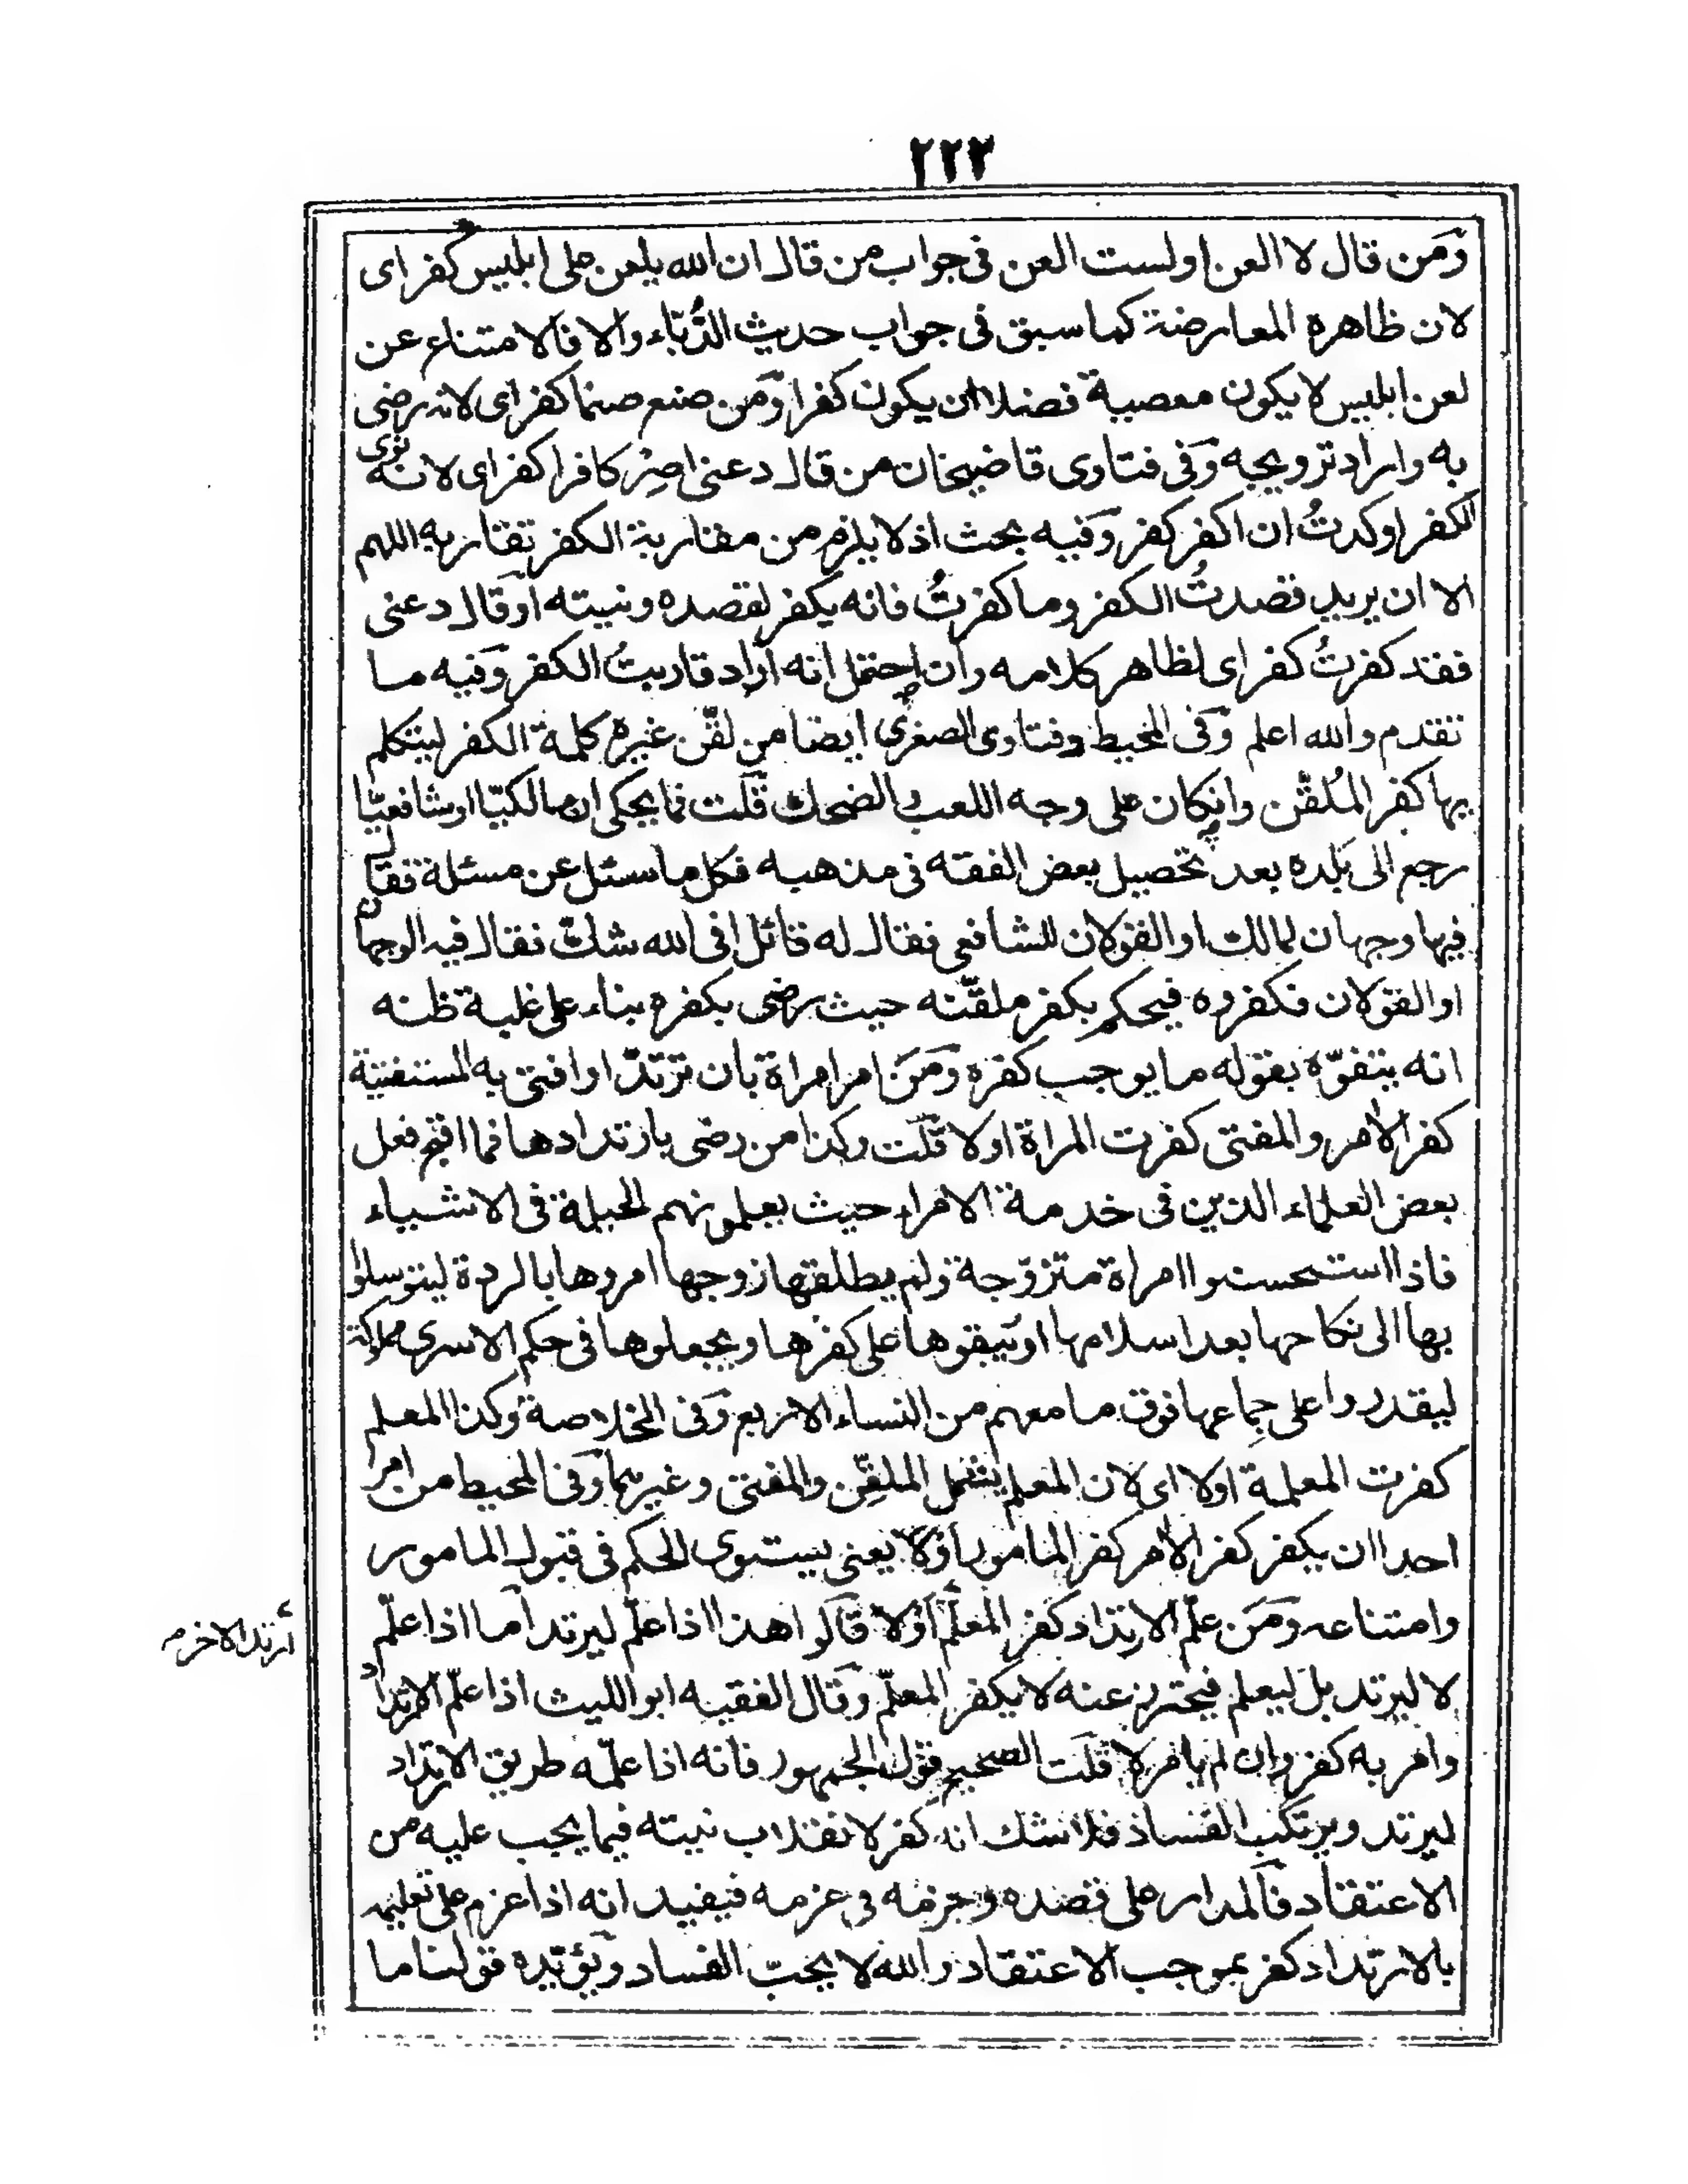 ٢٢٣
ومن قال لا العن اولست العن فى جواب من قال ان الله يلعن على ابليس كفر اى
لان ظاهره المعارضة كما سبق فى جواب حديث الدُّبّاء والا فالامتناع عن
لعن ابليس لا يكون معصية فضلا ان يكون كفرا ومن صنع صنما كفر اى لانه رضى
به واراد ترويجه وفى فتاوى قاضيخان من قال دعنى اصِرْ كافرا كفر اى لانه نوى
الكفر او كدتُ ان اكفر كفر وفيه بحث اذ لا يلزم من مقاربة الكفر تقاربه اللهم
الا ان يريد قصدتُ الكفر وما كفرتُ فانه يكفر لقصده ونيته اوقال دعنى
فقد كفرتُ كفر اى لظاهر كلامه وان احتمل انه اراد قاربتُ الكفر وفيه ما
تقدم والله اعلم وفى المحيط وفتاوى الصغرى ايضا من لقّن غيره كلمة الكفر ليتكلم
بها كفر المُلقّن وانكان على وجه اللعب والضحك قلت فما يحكى ان مالكيّا اوشافعيّا
رجع الى بلده بعد تحصيل بعض الفقه فى مذهبه فكل ما سئل عن مسئلة فقال
فيها وجهان لمالك او القولان للشافعى فقال له قائل افى الله شكّ فقال فيه الوجهان
او القولان فكفروه فيحكم بكفر ملقّنه حيث رضى بكفره بناء على غلبة ظنه
انه يتفوّه بقوله ما يوجب كفره ومن امر امراة بان ترتدّ اوافتى به المستفتية
كفر الآمر والمفتى كفرت المراة اولا قلت وكذا من رضى بارتدادها فما اقبح فعل
بعض العلماء الذين فى خدمة الامراء حيث يعلمونهم الحيلة فى الاشياء
فاذا استحسنوا امراة متزوّجة ولم يطلقها زوجها امروها بالردة ليتوسلوا
بها الى نكاحها بعد اسلامها او يبقوها على كفرها ويجعلوها فى حكم الاسرى مملوكة
ليقدروا على جِماعها فوق ما معهم من النساء الاربع وفى الخلاصة وكذا المعلم
كفرت المعلمة اولا اى لان المعلم يشمل الملقِّن والمفتى وغيرهما وفى المحيط من امر
احدا ان يكفر كفر الآمر كفر المامور اَوْلا يعنى يستوى الحكم فى قبول المامور
وامتناعه ومن علّم الارتداد كفر المعلّم اَوْلا قالوا هذا اذا علّم ليرتد اما اذا علّم
ارتد الاخر م
لا ليرتد بل ليعلم فيحترز عنه لا يكفر المعلّم وقال الفقيه ابو الليث اذا علّم الارتداد
وامر به كفر وان لم يامر لا قلت الصحيح قول الجمهور فانه اذا علّمه طريق الارتداد
ليرتد ويرتكب الفساد فلا شك انه كفر لانقلاب نيته فيما يجب عليه من
الاعتقاد فالمدار على قصده وجزمه فى عزمه فيفيد انه اذا عزم على تعليمه
بالارتداد كفر بموجب الاعتقاد والله لا يحبّ الفساد ويؤيّده قولنا ما